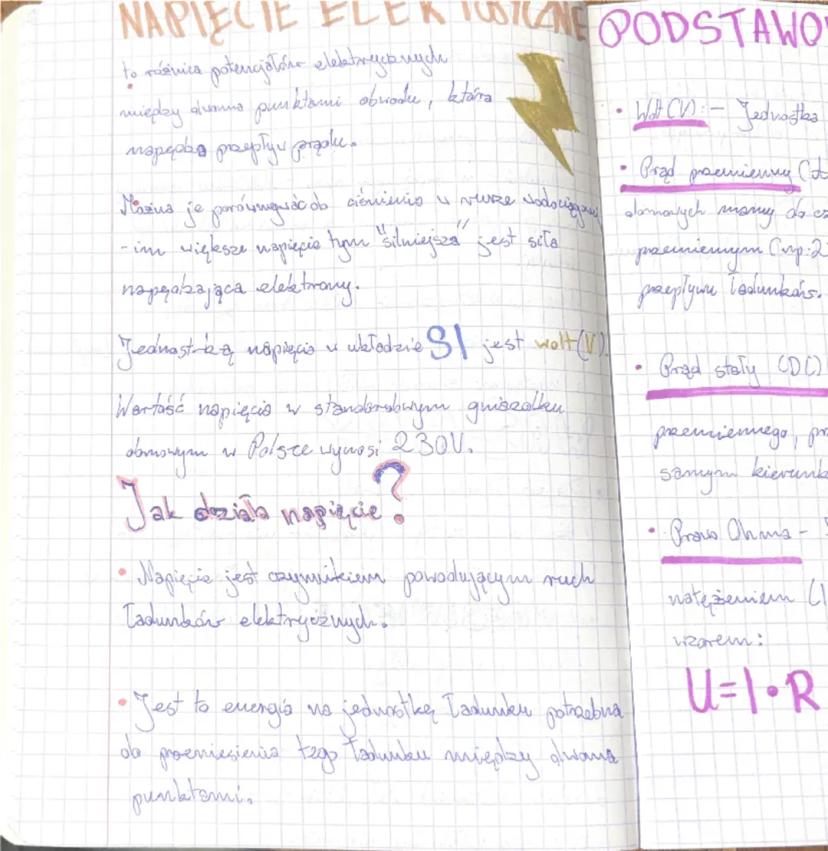 NAPIĘCIE ELEKTRYCZNE
to różnica potencjałów elektrycznych
między dwoma punktami obwodu, która
napędza przepływ prądu.
Można je porównywać do ciśnienia w rurze wodociągowej
- im większe napięcie tym "silniejsza" jest siła
napędzająca elektrony.
Jednostką napięcia w układzie SI jest wolt (V).
Wartość napięcia w standardowym gniazdku
domowym w Polsce wynosi 230V.
Jak działa napięcie?
• Napięcie jest czynnikiem powodującym ruch
ładunków elektrycznych.
• Jest to energia na jednostkę ładunku potrzebna
do przeniesienia tego ładunku między dwoma
punktami.
PODSTAWO
• Wolt (V): - Jednostka
• Prąd przemienny
domowych mamy do
przemiennym (np: 2
przepływu ładunków.
• Prąd stały (DC)
przemiennego,
samym kierunk
• Prawo Ohma -
natężeniem (I
wzorem:
U=I•R